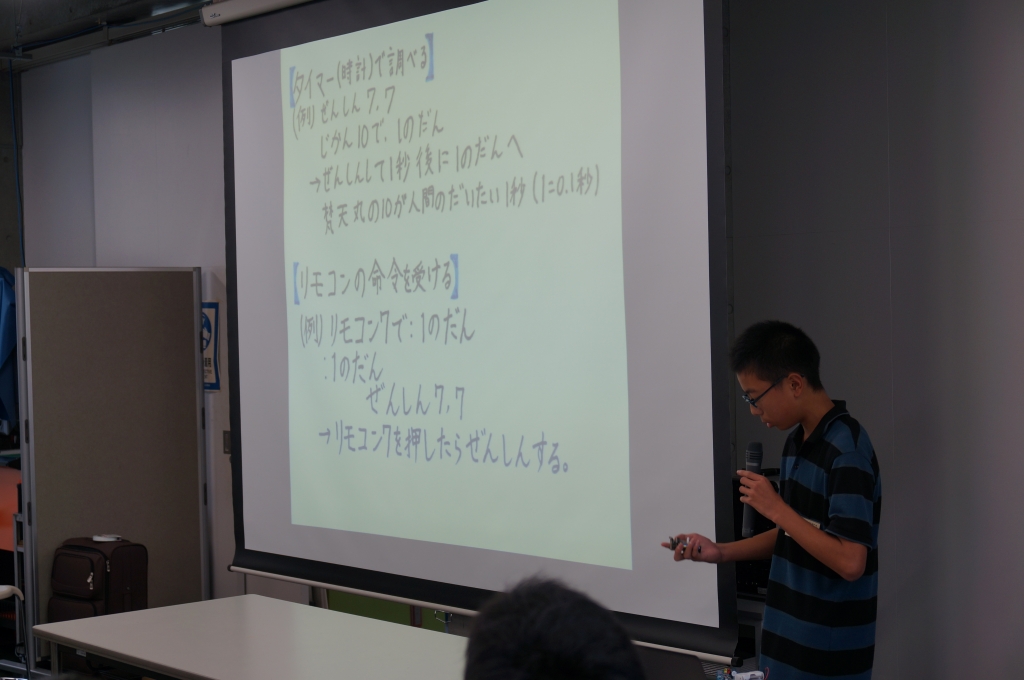 【タイマー(時計)で調べる】
(例) ぜんしん7,7
じかん10で、1のだん
→ぜんしんして1秒後に1のだんへ
梵天丸の10が人間のだいたい1秒(1=0.1秒)
【リモコンの命令を受ける】
(例) リモコン7で:1のだん
:1のだん
ぜんしん7,7
→リモコン7を押したらぜんしんする。